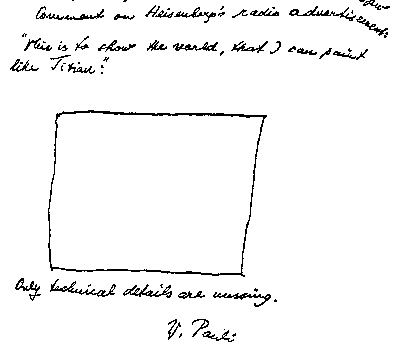 Comment on Heisenberg's radio advertisement:
"This is to show the world, that I can paint
like Titian:"
Only technical details are missing.
W. Pauli